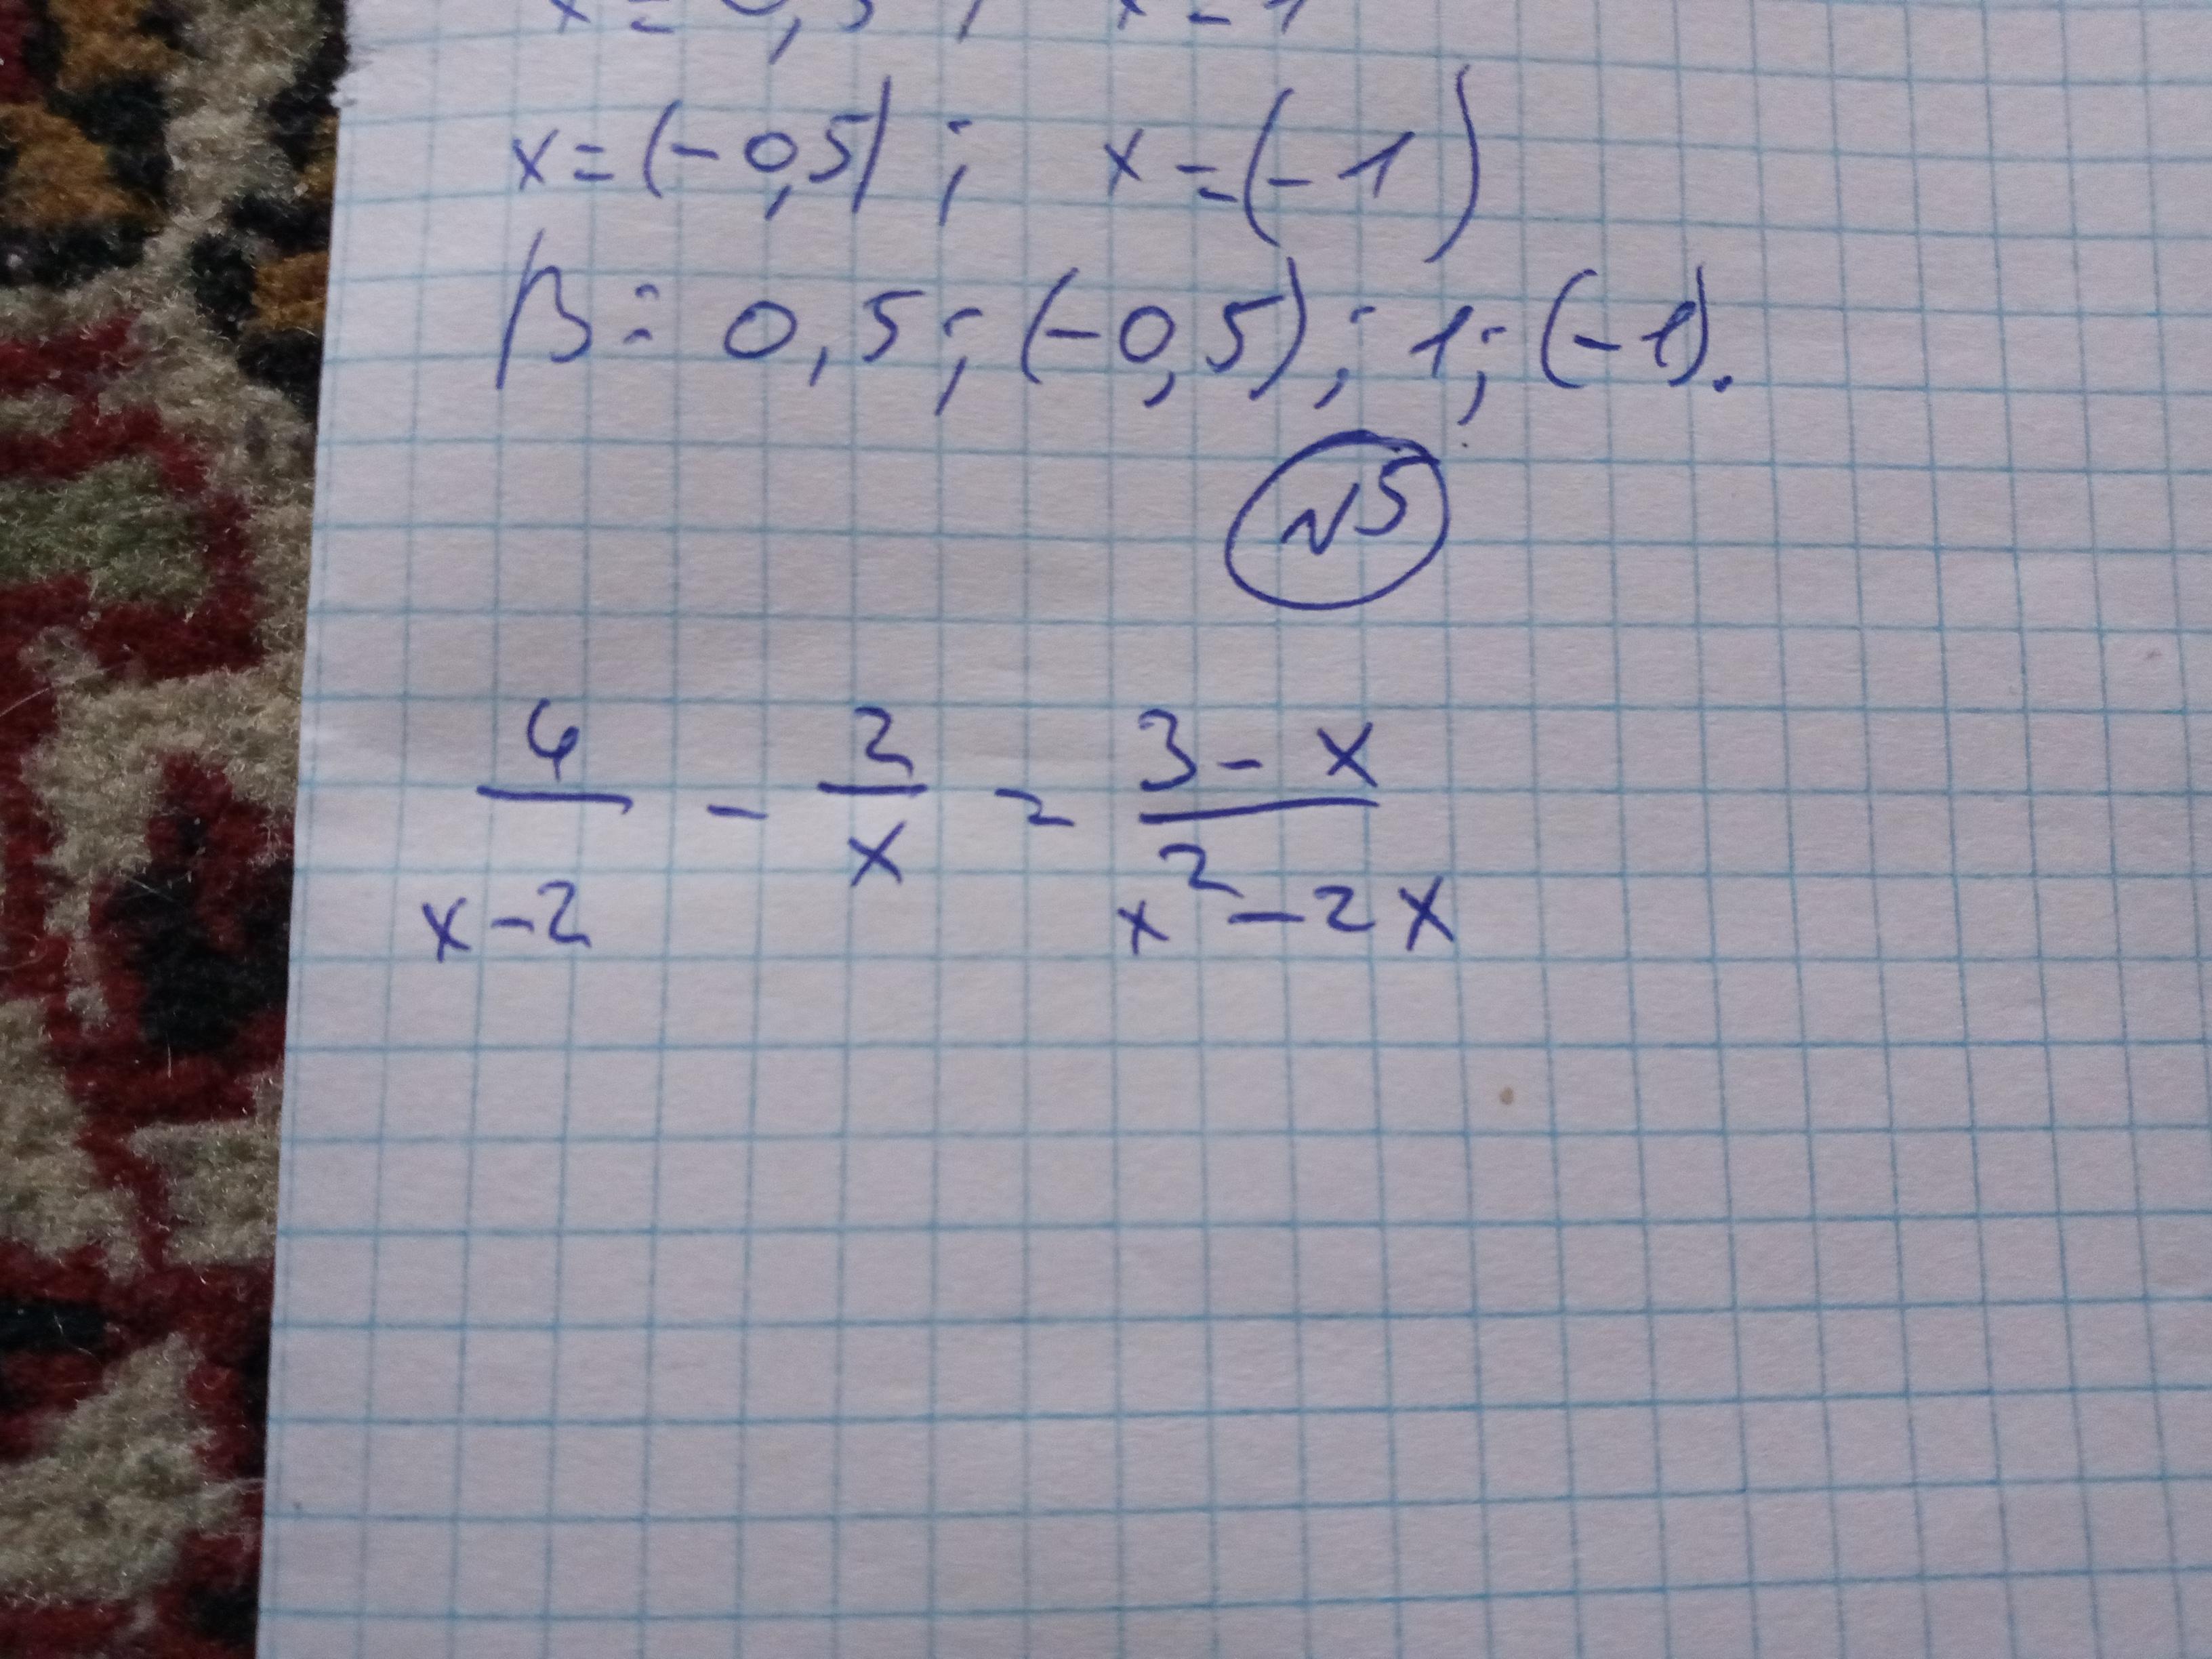 x = 0,5 ; x = 1
x = (-0,5) ; x = (-1)
В: 0,5; (-0,5); 1; (-1).
№5
4/(x-2) - 2/x = (3-x)/(x²-2x)